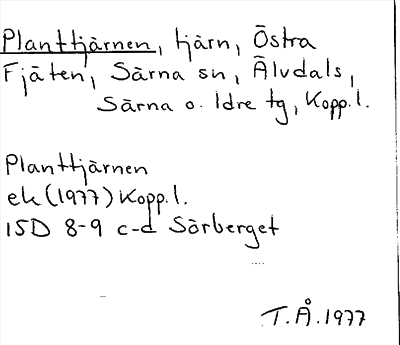 Planttjärnen, tjärn, Östra
Fjäten, Särna sn, Älvdals,
Särna o. Idre tg, Kopp.l.
Planttjärnen
ek (1977) Kopp.l.
15D 8-9 c-d Sörberget
T.Å.1977